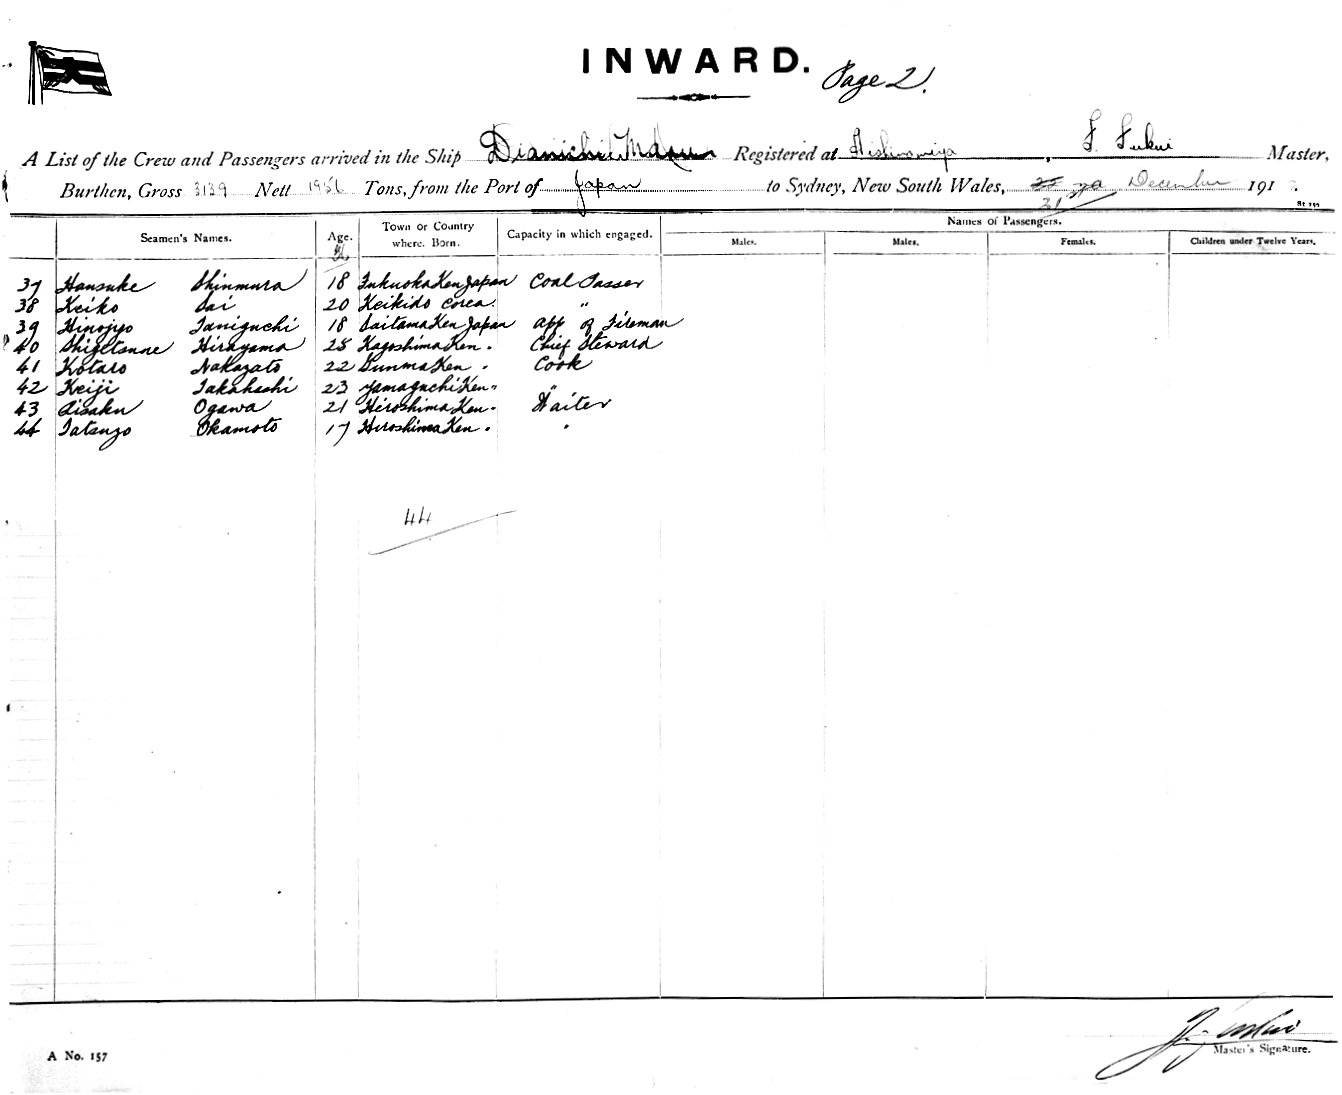 INWARD. Page 2.
A List of the Crew and Passengers arrived in the Ship Dianichi Maru Registered at Nishinomiya, F. Fukui Master,
Burthen, Gross 3139 Nett 1956 Tons, from the Port of Japan to Sydney, New South Wales, December 191
21
St 199
Seamen's Names. Age. Town or Country where Born. Capacity in which engaged. Names of Passengers.
Males. Males. Females. Children under Twelve Years.
37 Hansuke Shinmura 18 Fukuoka Ken Japan Coal Passer
38 Keiko Sai 20 Keikido Corea. "
39 Hinojyo Taniguchi 18 Saitama Ken Japan app of Fireman
40 Shigetsune Hirayama 25 Kagoshima Ken " Chief Steward
41 Kotaro Nakazato 22 Gunma Ken " Cook
42 Keiji Takahashi 23 Yamaguchi Ken " "
43 Aisaku Ogawa 21 Hiroshima Ken " Waiter
44 Tatsuzo Okamoto 17 Hiroshima Ken " "
44
Master's Signature.
A No. 157